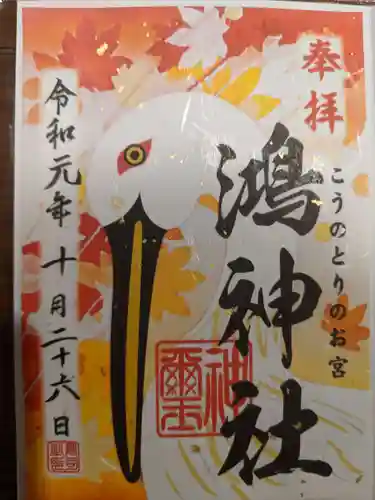 奉拝
こうのとりのお宮
鴻神社
令和元年十月二十六日